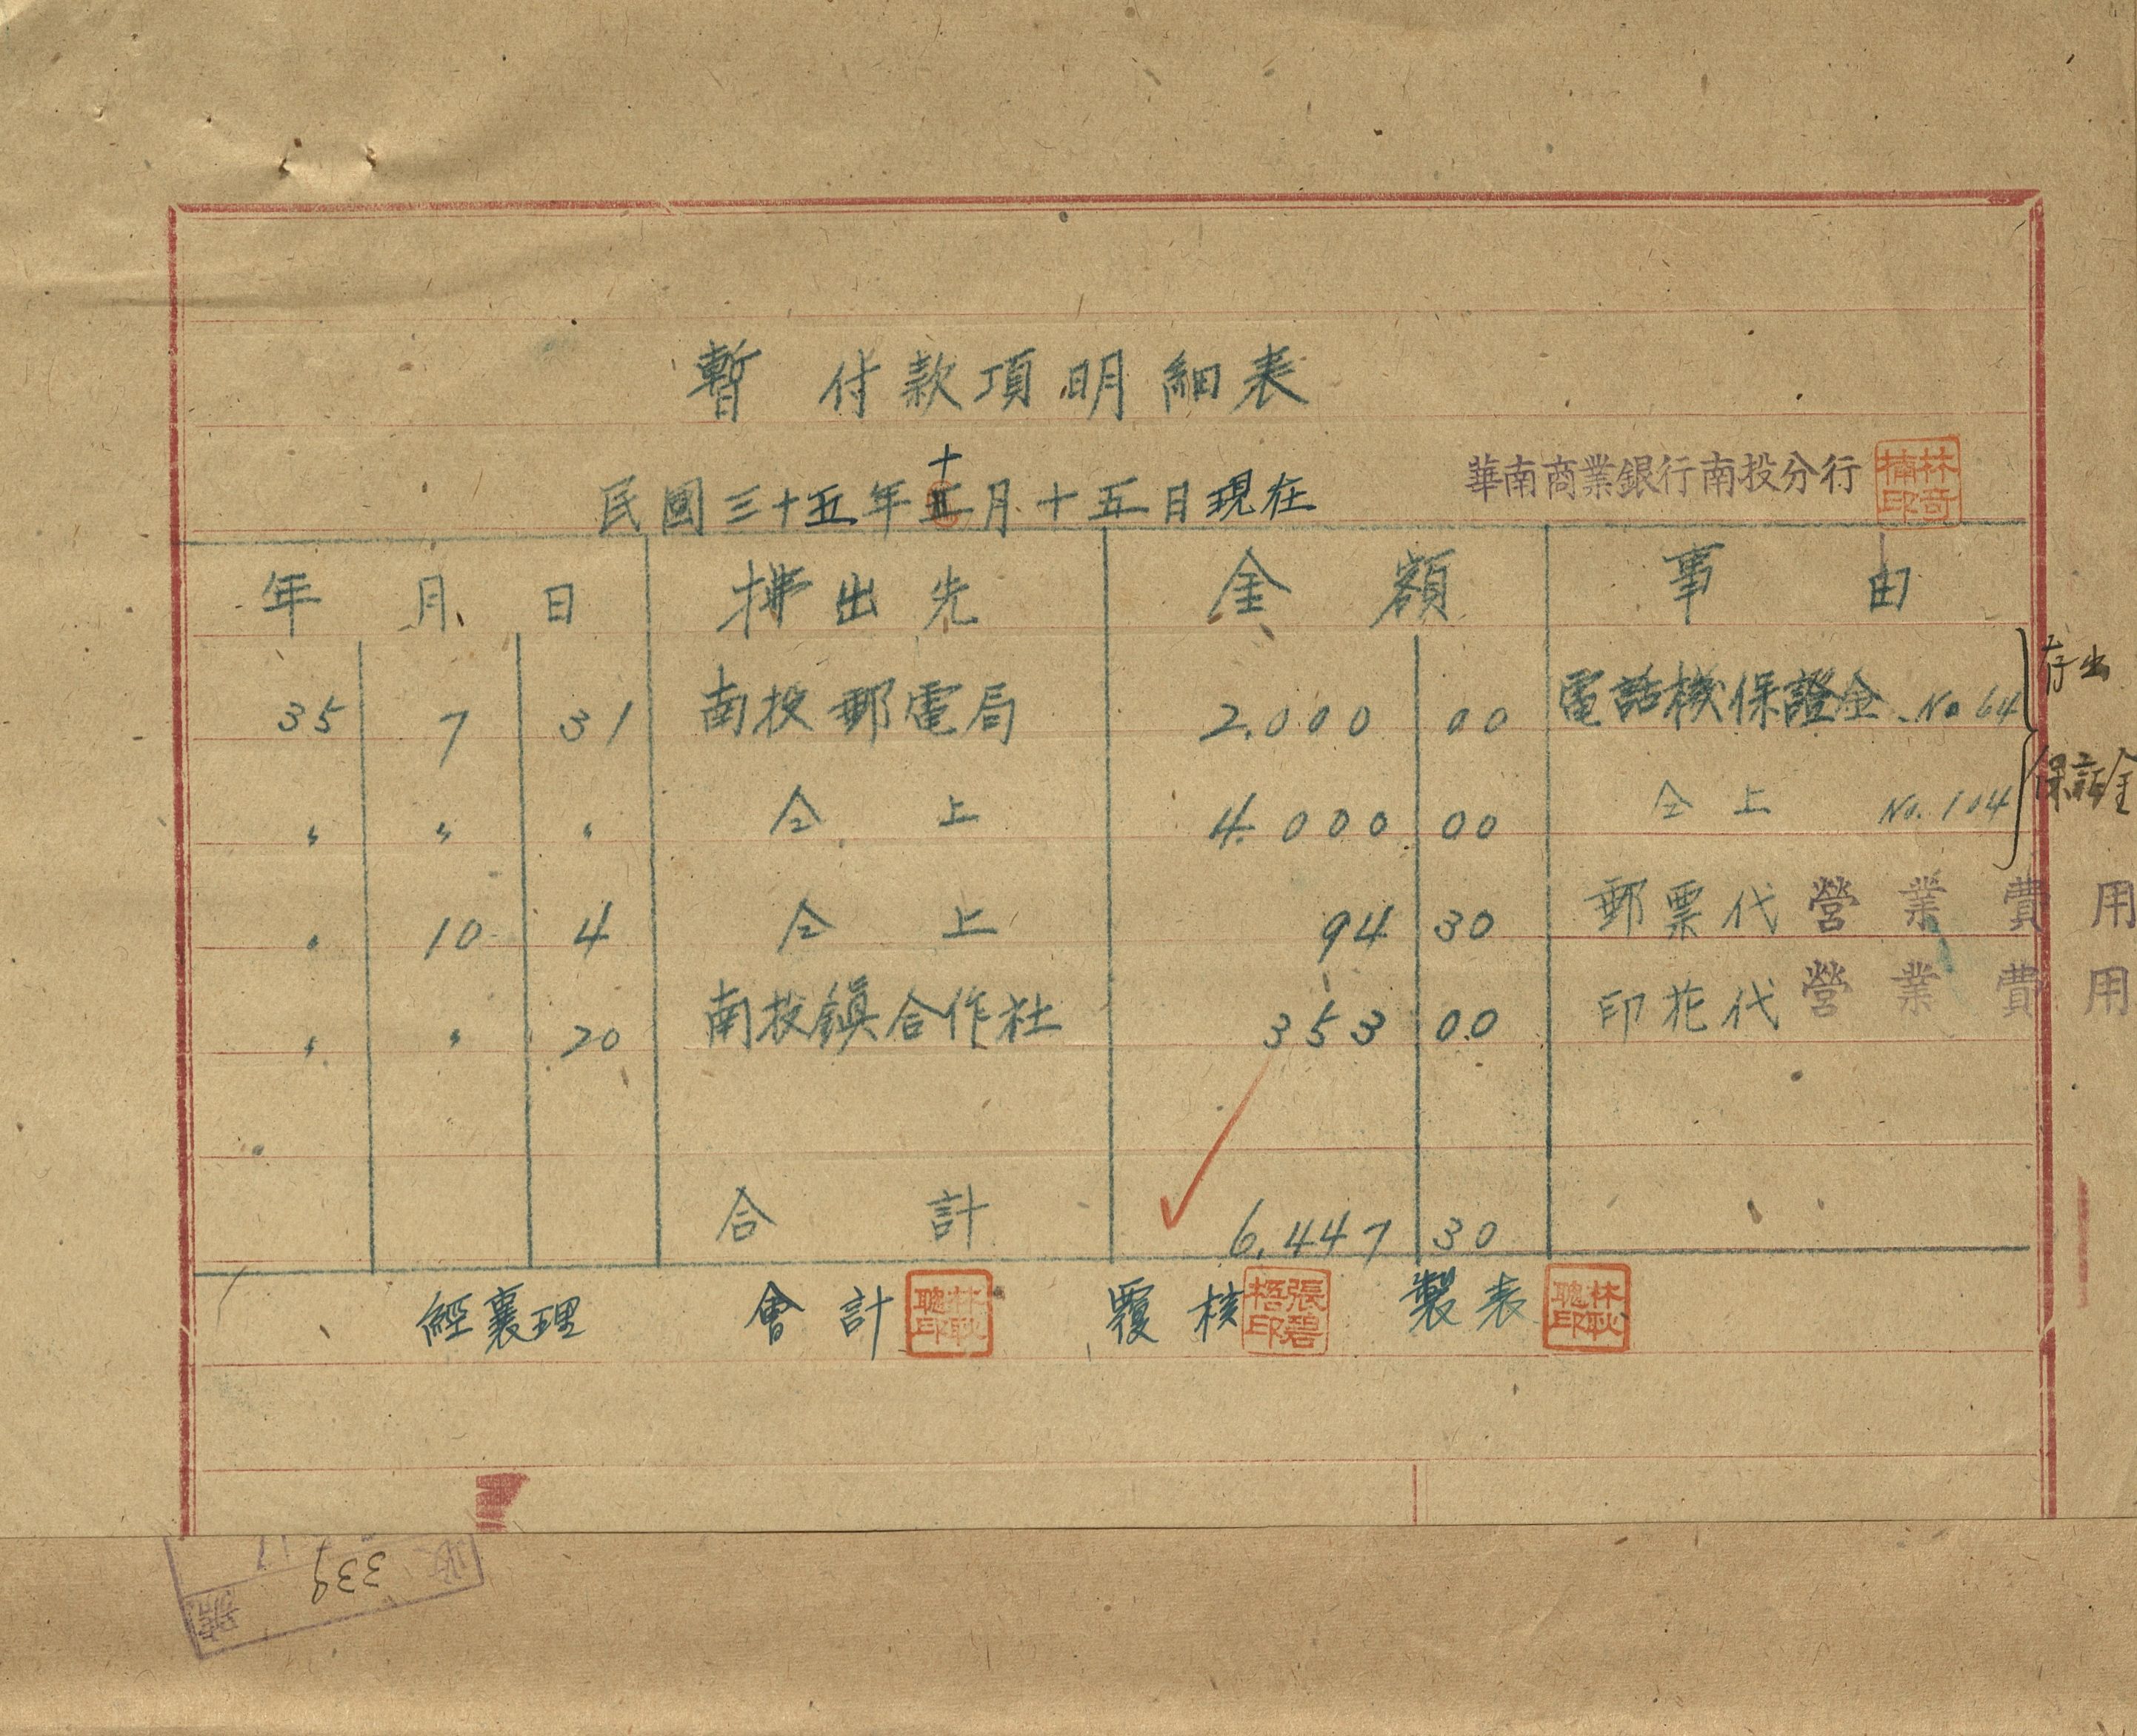 暫付款項明細表
民國三十五年十月十五日現在
華南商業銀行南投分行
年 月 日 拂出先 金額 事由
35 7 31 南投郵電局 2,000 00 電話機保證金 No 64
〃 〃 〃 仝上 4,000 00 仝上 No. 104
存出
保証金
〃 10 4 仝上 94 30 郵票代 營業費用
〃 〃 20 南投鎮合作社 353 00 印花代 營業費用
合計 6,447 30
經襄理 會計 覆核 張碧梧印 製表
339
號